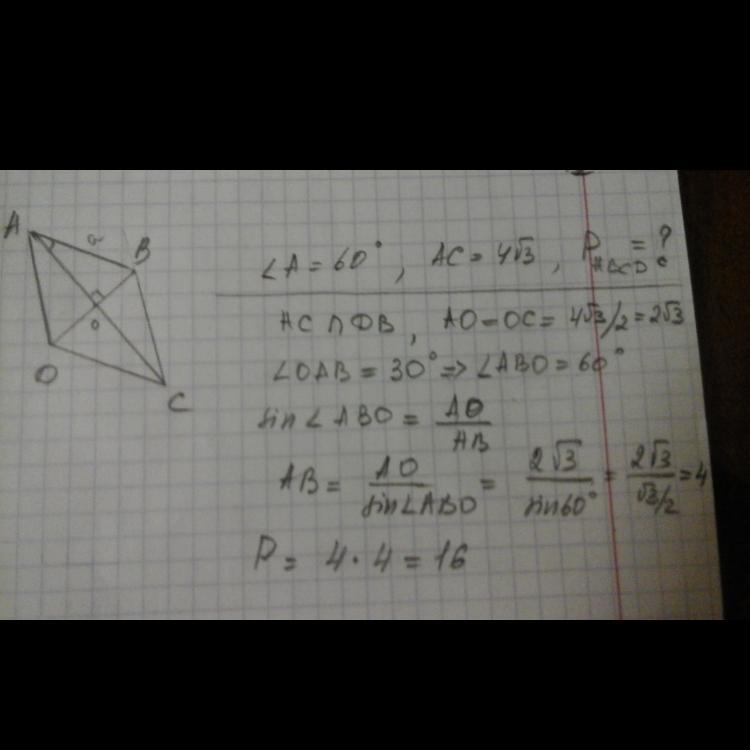 A
a
B
∠A = 60°, AC = 4√3, P ABCD = ?
AC ∩ DB, AO = OC = 4√3/2 = 2√3
o
D
∠OAB = 30° => ∠ABO = 60°
C
sin∠ABO = AO/AB
AB = AO/sin∠ABO = 2√3/sin60° = 2√3/√3/2 = 4
P = 4 · 4 = 16